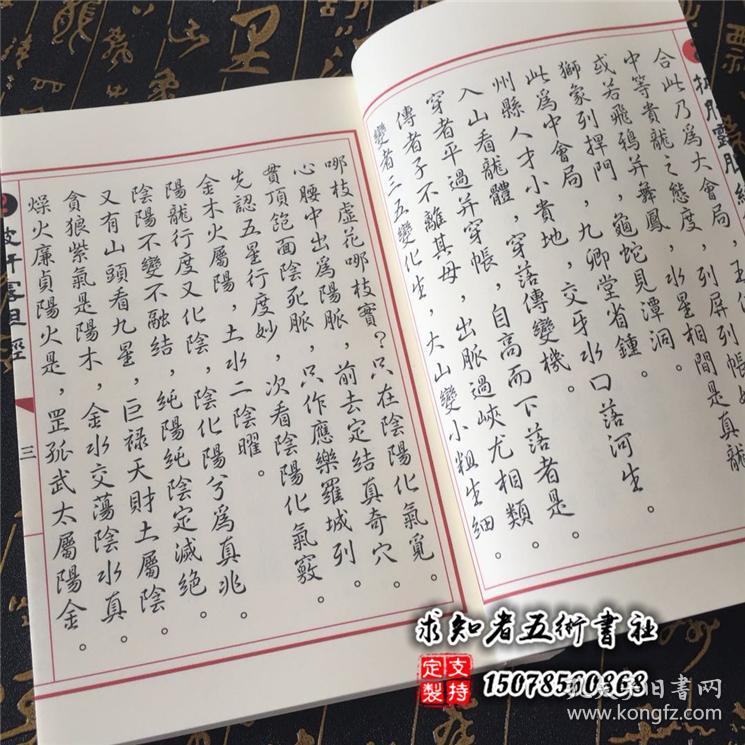 合此乃爲大會局，
中等貴龍之態度，列屏列帳
或若飛鴉并舞鳳，水星相間是真龍
獅象列捍門，龜蛇見潭洞。
此爲中會局，九卿堂省鍾。
州縣人才小貴地，交牙水口落河生。
入山看龍體，穿落傳變機。
穿者平過并穿帳，自高而下落者是。
傳者子不離其母，出脈過峽尤相類。
變者二五變化生，大山變小粗生細。
哪枝虛花哪枝實？只在陰陽化氣覓。
心腰中出爲陽脈，前去定結真奇穴。
貫頂飽面陰死脈，只作應樂羅城列。
先認五星行度妙，次看陰陽化氣竅。
金木火屬陽，土水二陰曜。
陽龍行度又化陰，陰化陽兮爲真兆。
陰陽不變不融結，純陽純陰定滅絕。
又有山頭看九星，巨祿天財土屬陰。
貪狼紫氣是陽木，金水交蕩陰水真。
燥火廉貞陽火是，罡孤武太屬陽金。
三
求知者五術書社
支持定製
15078510868
孔夫子旧書网
www.kongfz.com